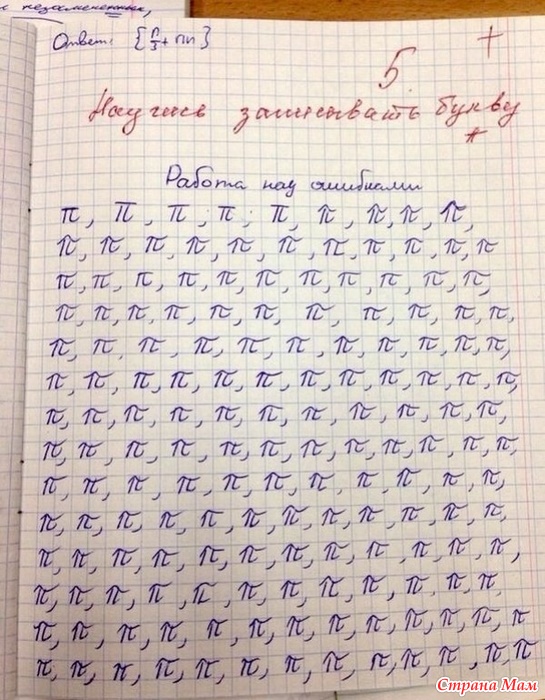 Ответ: {п/3 + пn}
+
5
Научись записывать букву
π
Работа над ошибками
π, π, π, π, π, π, π, π, π,
π, π, π, π, π, π, π, π, π, π, π
π, π, π, π, π, π, π, π, π, π, π,
π, π, π, π, π, π, π, π, π, π, π,
π, π, π, π, π, π, π, π, π, π, π,
π, π, π, π, π, π, π, π, π, π, π, π,
π, π, π, π, π, π, π, π, π, π, π,
π, π, π, π, π, π, π, π, π, π, π, π,
π, π, π, π, π, π, π, π, π, π, π,
π, π, π, π, π, π, π, π, π, π, π, π,
π, π, π, π, π, π, π, π, π, π, π, π,
π, π, π, π, π, π, π, π, π, π, π, π,
π, π, π, π, π, π, π, π, π, π, π, π, π
π, π, π, π, π, π, π, π, π, π, π, π, π
Страна Мам